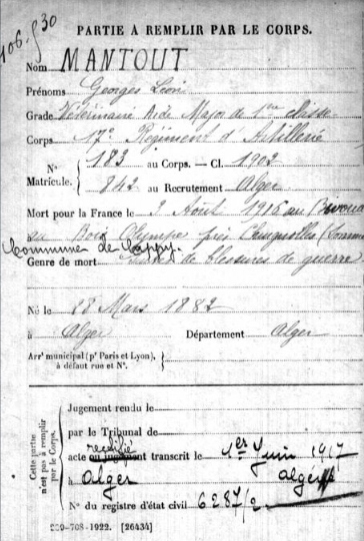 106.530
PARTIE À REMPLIR PAR LE CORPS.
Nom MANTOUT
Prénoms Georges Léon
Grade Vétérinaire Aide Major de 1re classe
Corps 17e Régiment d'Artillerie
N° Matricule. { 183 au Corps. — Cl. 1902
842 au Recrutement Alger
Mort pour la France le 3 Août 1916 au
du Bois Olympe près
Commune de Cappy.
Genre de mort de blessures de guerre
Né le 28 Mars 1882
à Alger Département Alger
Arr' municipal (p' Paris et Lyon), à défaut rue et N°.
Cette partie n'est pas à remplir par le Corps.
Jugement rendu le
par le Tribunal de
rectifié
acte ou jugement transcrit le 1er Juin 1917
à Alger
N° du registre d'état civil 6287/2
-708-1922. [26434]